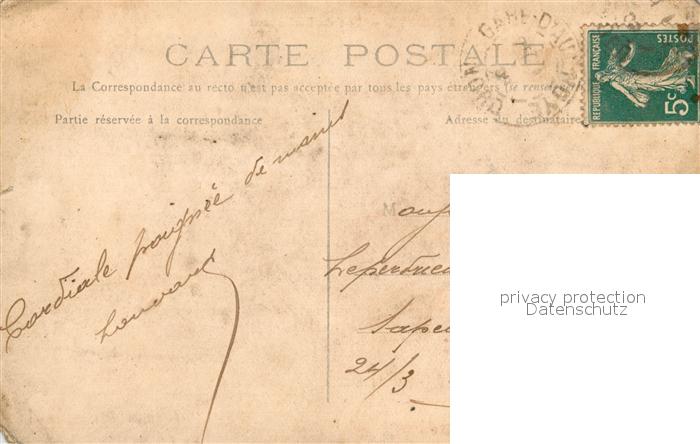 CARTE POSTALE
La Correspondance au recto n'est pas acceptée par tous les pays étrangers (se renseigner
Partie réservée à la correspondance
Adresse du destinataire
GARE-D'AU
RÉPUBLIQUE FRANÇAISE
POSTES
5c
Cordiale poignée de mains
M
Sape
24/3
privacy protection
Datenschutz